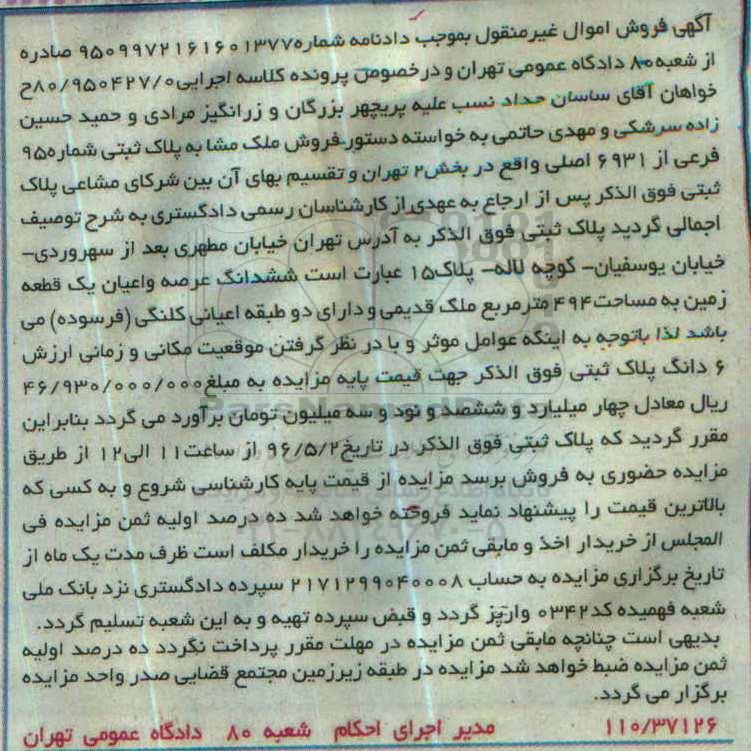 آگهی فروش اموال غیرمنقول بموجب دادنامه شماره۹۵۰۹۹۷۲۱۶۱۶۰۱۳۷۷ صادره
از شعبه۸۰ دادگاه عمومی تهران و درخصوص پرونده کلاسه اجرایی۸۰/۹۵۰۴۲۷/۰ح
خواهان آقای ساسان حداد نسب علیه پریچهر بزرگان و زرانگیز مرادی و حمید حسین
زاده سرشکی و مهدی حاتمی به خواسته دستور فروش ملک مشا به پلاک ثبتی شماره۹۵
فرعی از ۶۹۳۱ اصلی واقع در بخش۲ تهران و تقسیم بهای آن بین شرکای مشاعی پلاک
ثبتی فوق الذکر پس از ارجاع به عهدی از کارشناسان رسمی دادگستری به شرح توصیف
اجمالی گردید پلاک ثبتی فوق الذکر به آدرس تهران خیابان مطهری بعد از سهروردی-
خیابان یوسفیان- کوچه لاله- پلاک۱۵ عبارت است ششدانگ عرصه واعیان یک قطعه
زمین به مساحت۴۹۴ مترمربع ملک قدیمی و دارای دو طبقه اعیانی کلنگی (فرسوده) می
باشد لذا باتوجه به اینکه عوامل موثر و با در نظر گرفتن موقعیت مکانی و زمانی ارزش
۶ دانگ پلاک ثبتی فوق الذکر جهت قیمت پایه مزایده به مبلغ۴۶/۹۳۰/۰۰۰/۰۰۰
ریال معادل چهار میلیارد و ششصد و نود و سه میلیون تومان برآورد می گردد بنابراین
مقرر گردید که پلاک ثبتی فوق الذکر در تاریخ۹۶/۵/۲ از ساعت۱۱ الی۱۲ از طریق
مزایده حضوری به فروش برسد مزایده از قیمت پایه کارشناسی شروع و به کسی که
بالاترین قیمت را پیشنهاد نماید فروخته خواهد شد ده درصد اولیه ثمن مزایده فی
المجلس از خریدار اخذ و مابقی ثمن مزایده را خریدار مکلف است ظرف مدت یک ماه از
تاریخ برگزاری مزایده به حساب ۲۱۷۱۲۹۹۰۴۰۰۰۸ سپرده دادگستری نزد بانک ملی
شعبه فهمیده کد۰۳۴۲ واریز گردد و قبض سپرده تهیه و به این شعبه تسلیم گردد.
بدیهی است چنانچه مابقی ثمن مزایده در مهلت مقرر پرداخت نگردد ده درصد اولیه
ثمن مزایده ضبط خواهد شد مزایده در طبقه زیرزمین مجتمع قضایی صدر واحد مزایده
برگزار می گردد.
۱۱۰/۳۷۱۲۶ مدیر اجرای احکام شعبه ۸۰ دادگاه عمومی تهران